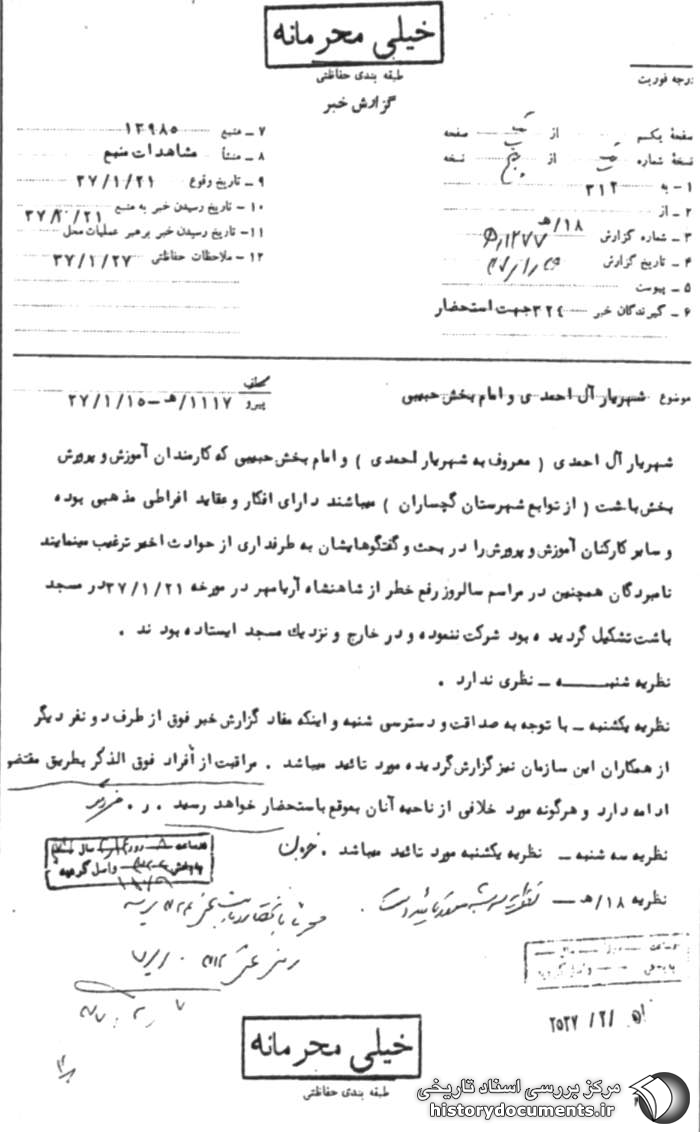 خیلی محرمانه
طبقه بندی حفاظتی
گزارش خبر
درجه فوریت
صفحهٔ یکم از صفحه
نسخهٔ شماره از پنج نسخه
۱ـ به ۳۱۲
۲ـ از ۱۸/هـ
۳ـ شماره گزارش
۴ـ تاریخ گزارش
۵ـ پیوست
۶ـ گیرندگان خبر ۳۲۴ جهت استحضار
۷ـ منبع ۱۳۹۸۵
۸ـ منشأ مشاهدات منبع
۹ـ تاریخ وقوع ۳۷/۱/۲۱
۱۰ـ تاریخ رسیدن خبر به منبع ۳۷/۱/۲۱
۱۱ـ تاریخ رسیدن خبر برهبر عملیات محل
۱۲ـ ملاحظات حفاظتی ۳۷/۱/۲۷
موضوع شهریار آل احمدی و امام بخش حبیبی
پیرو ۱۱۱۷/هـ ـ ۲۷/۱/۱۵
شهریار آل احمدی ( معروف به شهریار احمدی ) و امام بخش حبیبی که کارمندان آموزش و پرورش
بخش باشت ( از توابع شهرستان گچساران ) میباشند دارای افکار و عقاید افراطی مذهبی بوده
و سایر کارکنان آموزش و پرورش را در بحث و گفتگوهایشان به طرفداری از حوادث اخیر ترغیب مینمایند
نامبردگان همچنین در مراسم سالروز رفع خطر از شاهنشاه آریامهر در مورخه ۳۷/۱/۲۱ در مسجد
باشت تشکیل گردیده بود شرکت ننموده و در خارج و نزدیك مسجد ایستاده بودند .
نظریه شنبه ـ نظری ندارد .
نظریه یکشنبه ـ با توجه به صداقت و دسترسی شنبه و اینکه مفاد گزارش خبر فوق از طرف دو نفر دیگر
از همکاران این سازمان نیز گزارش گردیده مورد تائید میباشد . مراقبت از أفراد فوق الذکر بطریق مقتضی
ادامه دارد و هرگونه مورد خلافی از ناحیه آنان بموقع باستحضار خواهد رسید . ر .
نظریه سه شنبه ـ نظریه یکشنبه مورد تائید میباشد .
نظریه ۱۸/هـ ـ نظریه سه شنبه مورد تائید است .
۲۵۳۷ /۲/
خیلی محرمانه
طبقه بندی حفاظتی
مرکز بررسی اسناد تاریخی
historydocuments.ir